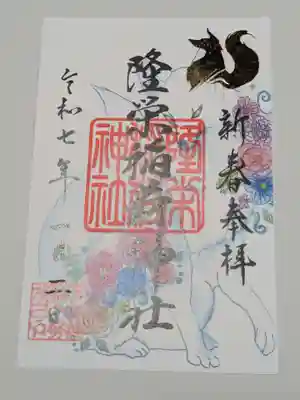 新春奉拝
隆栄稲荷神社
隆栄
神社
令和七年一月二日